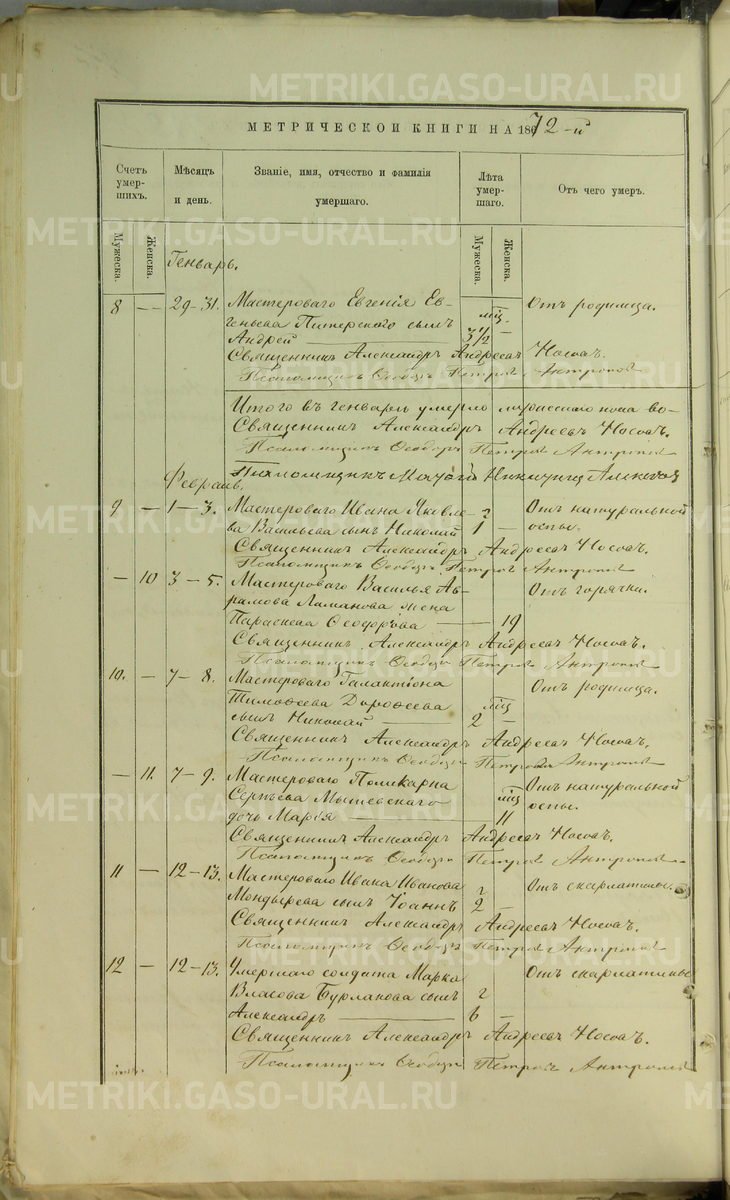 METRIKI.GASO-URAL.RU
МЕТРИЧЕСКОЙ КНИГИ НА 1872-й
Счетъ умершихъ.
Мѣсяцъ и день.
Званіе, имя, отчество и фамилія умершаго.
Лѣта умершаго.
Отъ чего умеръ.
Мужеска.
Женска.
Мужеска.
Женска.
Генварь.
8 — 29-31. Мастероваго Евгенія Ев- Отъ родимца.
геньева Питерскаго сынъ мѣс.
Андрей 3½ —
Священникъ Александръ Андреевъ Носовъ.
Псаломщикъ Ѳеодоръ Петровъ
Итого въ генварѣ умерло мужескаго пола во-
Священникъ Александръ Андреевъ Носовъ.
Псаломщикъ Ѳеодоръ Петровъ
Псаломщикъ
Февраль.
9 — 1-3. Мастероваго Ивана Яковле- г Отъ натуральной
ва Васильева сынъ Николай 1 — оспы.
Священникъ Александръ Андреевъ Носовъ.
Псаломщикъ Ѳеодоръ Петровъ
— 10 3-5. Мастероваго Василья Ав- Отъ горячки.
рамова Ламанова жена
Параскева Ѳеодорова — 19
Священникъ Александръ Андреевъ Носовъ.
Псаломщикъ Ѳеодоръ Петровъ
10. — 7-8. Мастероваго Галактіона Отъ родимца.
Тимоѳеева Дороѳеева мѣс.
сынъ Николай 2 —
Священникъ Александръ Андреевъ Носовъ.
Псаломщикъ Ѳеодоръ Петровъ
— 11. 7-9. Мастероваго Поликарпа Отъ натуральной
Сергѣева мѣс. оспы.
дочь Марья 11
Священникъ Александръ Андреевъ Носовъ.
Псаломщикъ Ѳеодоръ Петровъ
11 — 12-13. Мастероваго Ивана Иванова г Отъ скарлатины.
Мондырева сынъ Іоаннъ 2 —
Священникъ Александръ Андреевъ Носовъ.
Псаломщикъ Ѳеодоръ Петровъ
12 — 12-13. Умершаго солдата Марка Отъ скарлатины
Власова Бурлакова сынъ г
Александръ 6 —
Священникъ Александръ Андреевъ Носовъ.
Псаломщикъ Ѳеодоръ Петровъ
METRIKI.GASO-URAL.RU